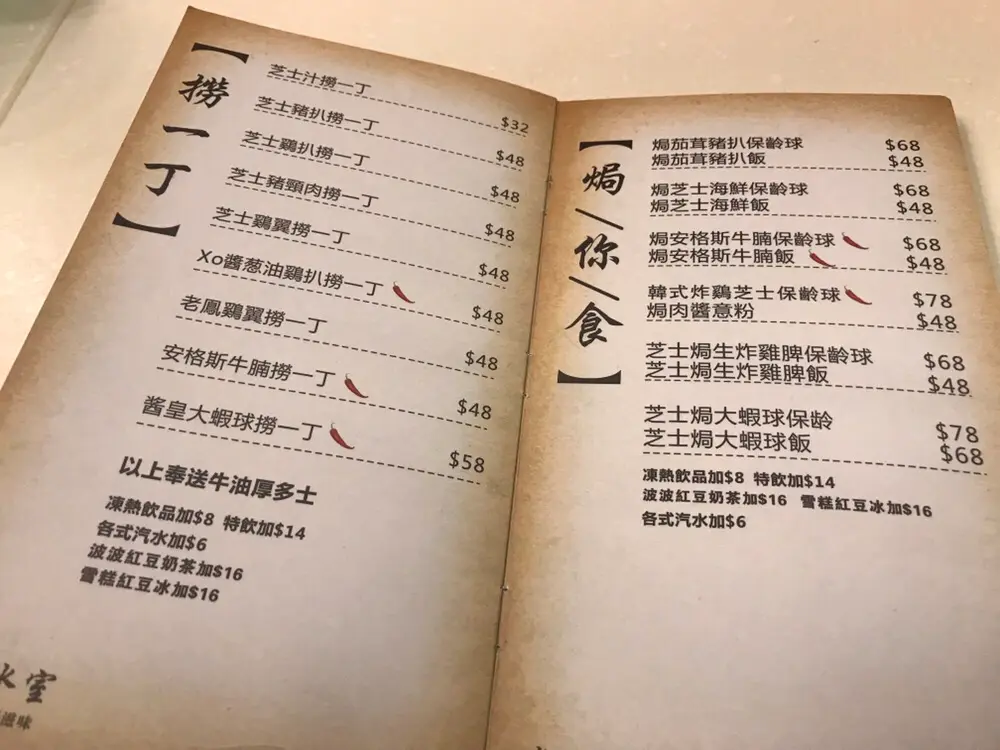 【撈一丁】
芝士汁撈一丁 $32
芝士豬扒撈一丁 $48
芝士鷄扒撈一丁 $48
芝士豬頸肉撈一丁 $48
芝士鷄翼撈一丁 $48
Xo醬葱油鷄扒撈一丁 $48
老鳳鷄翼撈一丁 $48
安格斯牛腩撈一丁 $48
酱皇大蝦球撈一丁 $58
以上奉送牛油厚多士
凍熱飲品加$8 特飲加$14
各式汽水加$6
波波紅豆奶茶加$16
雪糕紅豆冰加$16
冰室
滋味
【焗/你/食】
焗茄茸豬扒保齡球 $68
焗茄茸豬扒飯 $48
焗芝士海鮮保齡球 $68
焗芝士海鮮飯 $48
焗安格斯牛腩保齡球 $68
焗安格斯牛腩飯 $48
韓式炸鷄芝士保齡球 $78
焗肉醬意粉 $48
芝士焗生炸雞脾保齡球 $68
芝士焗生炸雞脾飯 $48
芝士焗大蝦球保龄 $78
芝士焗大蝦球飯 $68
凍熱飲品加$8 特飲加$14
波波紅豆奶茶加$16 雪糕紅豆冰加$16
各式汽水加$6